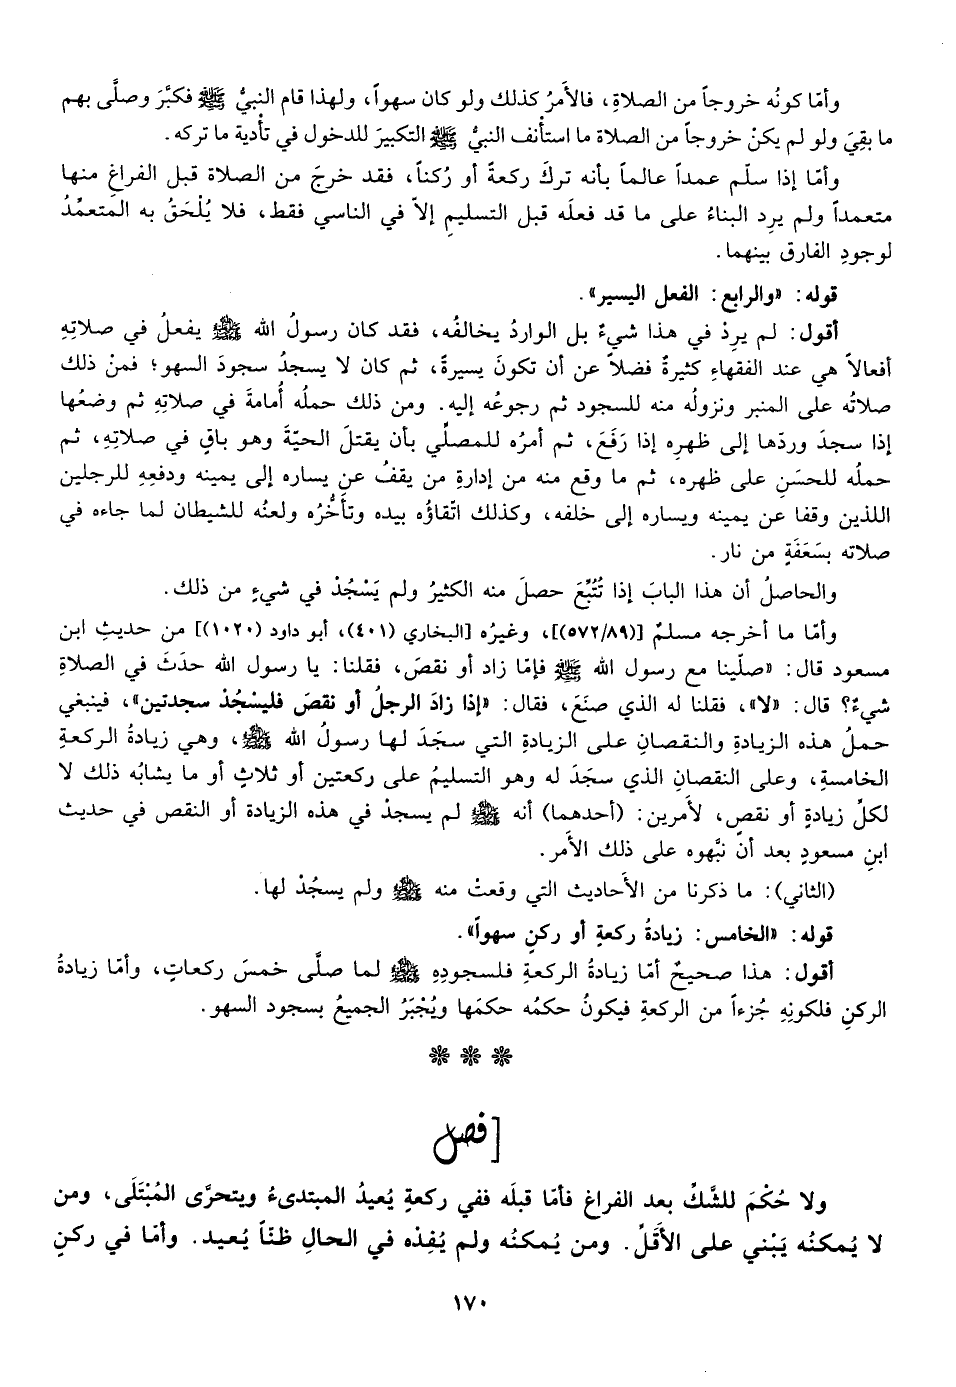 وأمّا كونُه خروجاً من الصلاةِ، فالأَمرُ كذلك ولو كان سهواً، ولهذا قام النبيُّ ﷺ فكبَّرَ وصلَّى بهم
ما بقِيَ ولو لم يكنْ خروجاً من الصلاة ما استأْنف النبيُّ ﷺ التكبيرَ للدخول في تأْدية ما تركه.
وأمّا إذا سلّم عمداً عالماً بأنه تركَ ركعةً أو رُكناً، فقد خرجَ من الصلاة قبل الفراغِ منها
متعمداً ولم يرِد البناءُ على ما قد فعلَه قبل التسليمِ إلاّ في الناسي فقط، فلا يُلْحَقُ به المتعمِّدُ
لوجودِ الفارق بينهما.
قوله: «والرابع: الفعل اليسير».
أقول: لم يرِدْ في هذا شيءٌ بل الواردُ يخالفُه، فقد كان رسولُ الله ﷺ يفعلُ في صلاتِهِ
أفعالاً هي عند الفقهاءِ كثيرةً فضلاً عن أن تكونَ يسيرةً، ثم كان لا يسجدُ سجودَ السهو؛ فمنْ ذلك
صلاتُه على المنبر ونزولُه منه للسجود ثم رجوعُه إليه. ومن ذلك حملُه أُمامةَ في صلاتِهِ ثم وضعُها
إذا سجدَ وردّها إلى ظهرِه إذا رَفَعَ، ثم أمرُه للمصلِّي بأن يقتلَ الحيّةَ وهو باقٍ في صلاتِهِ، ثم
حملُه للحسَنِ على ظهره، ثم ما وقع منه من إدارةِ من يقفُ عن يساره إلى يمينه ودفعِهِ للرجلين
اللذين وقفا عن يمينه ويساره إلى خلفه، وكذلك اتّقاؤُه بيده وتأَخُّرُه ولعنُه للشيطان لما جاءه في
صلاته بسَعَفَةٍ من نار.
والحاصلُ أن هذا البابَ إذا تُتُبِّعَ حصلَ منه الكثيرُ ولم يَسْجُدْ في شيءٍ من ذلك.
وأمّا ما أخرجه مسلمٌ [(٥٧٢/٨٩)]، وغيرُه [البخاري (٤٠١)، أبو داود (١٠٢٠)] من حديثِ ابن
مسعود قال: «صلّينا مع رسول الله ﷺ فإمّا زاد أو نقصَ، فقلنا: يا رسول الله حدَثَ في الصلاةِ
شيءٌ؟ قال: «لا»، فقلنا له الذي صنَعَ، فقال: «إذا زادَ الرجلُ أو نقصَ فليسْجُدْ سجدتين»، فينبغي
حملُ هذه الزيادةِ والنقصانِ على الزيادةِ التي سجَدَ لها رسولُ الله ﷺ، وهي زيادةُ الركعةِ
الخامسةِ، وعلى النقصانِ الذي سجَدَ له وهو التسليمُ على ركعتين أو ثلاثٍ أو ما يشابُه ذلك لا
لكلِّ زيادةٍ أو نقصٍ، لأمرين: (أحدهما) أنه ﷺ لم يسجدْ في هذه الزيادة أو النقص في حديث
ابنِ مسعودٍ بعد أنْ نبَّهوه على ذلك الأَمر.
(الثاني): ما ذكرنا من الأَحاديث التي وقعتْ منه ﷺ ولم يسجُدْ لها.
قوله: «الخامس: زيادةُ ركعةٍ أو ركنٍ سهواً».
أقول: هذا صحيحٌ أمّا زيادةُ الركعةِ فلسجودِهِ ﷺ لما صلَّى خمسَ ركعاتٍ، وأمّا زيادةُ
الركنِ فلكونِهِ جُزءاً من الركعةِ فيكونُ حكمُه حكمَها ويُجْبَرُ الجميعُ بسجود السهو.
[فصل
ولا حُكْمَ للشَّكِّ بعد الفراغِ فأمّا قبلَه ففي ركعةٍ يُعيدُ المبتدىءُ ويتحرَّى المُبْتَلَى، ومن
لا يُمكنُه يَبْني على الأَقَلِّ. ومن يُمكنُه ولم يُفِدْه في الحالِ ظنّاً يُعيد. وأمّا في ركنٍ
١٧٠